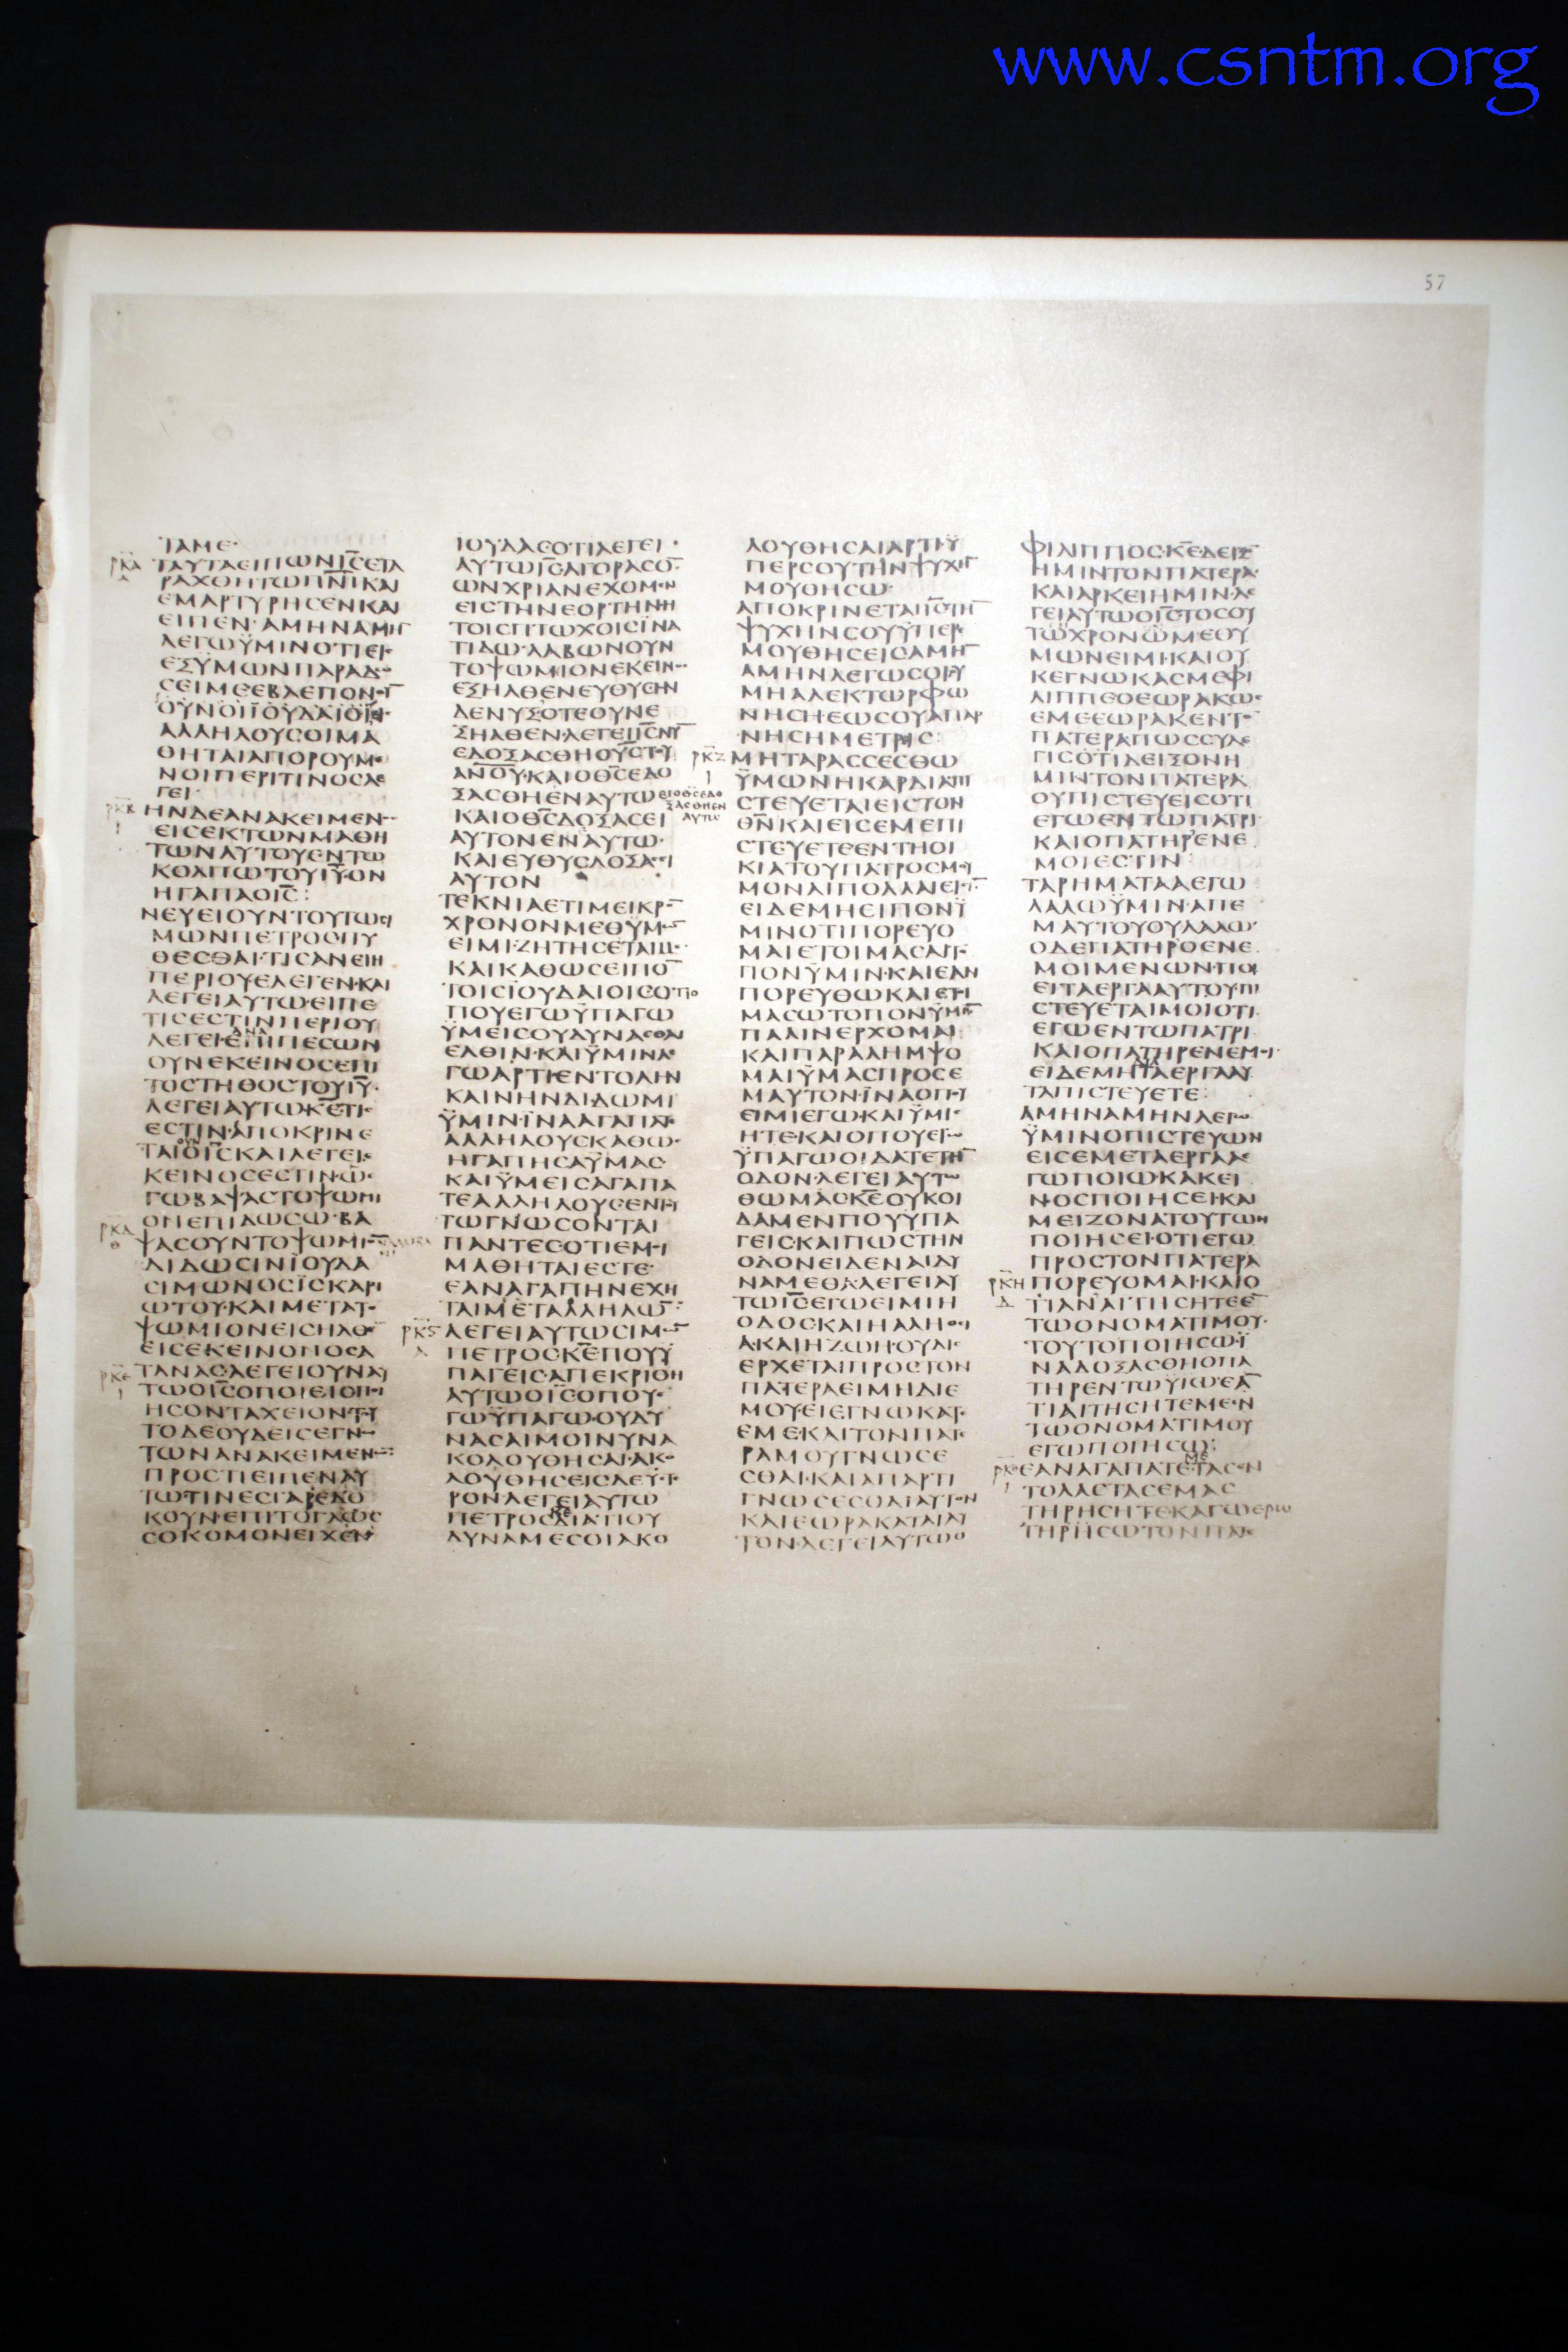 www.csntm.org
57
ΤΑΥΤΑΕΙΠΩΝΙ̅Σ̅ΕΤΑ
ΡΑΧΘΗΤΩΠ̅Ν̅Ι̅ΚΑΙ
ΕΜΑΡΤΥΡΗϹΕΝΚΑΙ
ΕΙΠΕΝ·ΑΜΗΝΑΜΗ
ΛΕΓΩΫΜΙΝΟΤΙΕΙϹ
ΕΞΫΜΩΝΠΑΡΑΔΩ
ϹΕΙΜΕΕΒΛΕΠΟΝΕΙ̅
ΟΥΝΟΙΪΟΥΔΑΙΟΙΕΙϹ
ΑΛΛΗΛΟΥϹΟΙΜΑ
ΘΗΤΑΙΑΠΟΡΟΥΜΕ
ΝΟΙΠΕΡΙΤΙΝΟϹΛΕ
ΓΕΙ·
ΗΝΔΕΑΝΑΚΕΙΜΕΝΟϹ
ΕΙϹΕΚΤΩΝΜΑΘΗ
ΤΩΝΑΥΤΟΥΕΝΤΩ
ΚΟΛΠΩΤΟΥΙ̅Υ̅·ΟΝ
ΗΓΑΠΑΟΙ̅Ϲ̅:
ΝΕΥΕΙΟΥΝΤΟΥΤΩϹΙ
ΜΩΝΠΕΤΡΟϹΠΥ
ΘΕϹΘΑΙ·ΤΙϹΑΝΕΙΗ
ΠΕΡΙΟΥΕΛΕΓΕΝ·ΚΑΙ
ΛΕΓΕΙΑΥΤΩ·ΕΙΠΕ
ΤΙϹΕϹΤΙΝΠΕΡΙΟΥ
ΑΝΑ
ΛΕΓΕΙ·ΕΠΙΠΕϹΩΝ
ΟΥΝΕΚΕΙΝΟϹΕΠΙ
ΤΟϹΤΗΘΟϹΤΟΥΙ̅Υ̅·
ΛΕΓΕΙΑΥΤΩ·Κ̅Ε̅ΤΙϹ
ΕϹΤΙΝ·ΑΠΟΚΡΙΝΕ
ΤΑΙΟΙ̅Ϲ̅ΚΑΙΛΕΓΕΙΕ
ΚΕΙΝΟϹΕϹΤΙΝΩΕ
ΓΩΒΑΨΑϹΤΟΨΩΜΙ
ΟΝΕΠΙΔΩϹΩ·ΒΑ
ΨΑϹΟΥΝΤΟΨΩΜΙΟ̅
ΔΙΔΩϹΙΝΪΟΥΔΑ
ϹΙΜΩΝΟϹΪϹΚΑΡΙ
ΩΤΟΥ·ΚΑΙΜΕΤΑΤΟ
ΨΩΜΙΟΝΕΙϹΗΛΘΕ̅
ΕΙϹΕΚΕΙΝΟΝΟϹΑ
ΤΑΝΑϹ·ΛΕΓΕΙΟΥΝΑΥ
ΤΩΟΙ̅Ϲ̅ΟΠΟΙΕΙϹΠΟΙ
ΗϹΟΝΤΑΧΕΙΟΝΤΟΥ
ΤΟΔΕΟΥΔΕΙϹΕΓΝΩ
ΤΩΝΑΝΑΚΕΙΜΕΝΩ̅:
ΠΡΟϹΤΙΕΙΠΕΝΑΥ
ΤΩ·ΤΙΝΕϹΓΑΡΕΔΟ
ΚΟΥΝ·ΕΠΙΤΟΓΛΩϹ
ϹΟΚΟΜΟΝΕΙΧΕΝ
ΙΟΥΔΑϹΟΤΙΛΕΓΕΙ·
ΑΥΤΩΙ̅Ϲ̅ΑΓΟΡΑϹΟ̅
ΩΝΧΡΙΑΝΕΧΟΜΕΝ
ΕΙϹΤΗΝΕΟΡΤΗΝΗ
ΤΟΙϹΠΤΩΧΟΙϹΪΝΑ
ΤΙΔΩ·ΛΑΒΩΝΟΥΝ
ΤΟΨΩΜΙΟΝΕΚΕΙΝΟϹ
ΕΞΗΛΘΕΝΕΥΘΥϹΗΝ
ΔΕΝΥΞΟΤΕΟΥΝΕ
ΞΗΛΘΕΝ·ΛΕΓΕΙΙ̅Ϲ̅ΝΥ̅
ΕΔΟΞΑϹΘΗΟΥ̅Ϲ̅ΤΟΥ
ΑΝ̅Ο̅Υ̅·ΚΑΙΟΘ̅Ϲ̅ΕΔΟ
ΞΑϹΘΗΕΝΑΥΤΩ
ΕΙΟΘ̅Ϲ̅ΕΔΟ
ΞΑϹΘΗΕΝ
ΑΥΤΩ
ΚΑΙΟΘ̅Ϲ̅ΔΟΞΑϹΕΙ
ΑΥΤΟΝΕΝΑΥΤΩ·
ΚΑΙΕΥΘΥϹΔΟΞΑϹΕΙ
ΑΥΤΟΝ
ΤΕΚΝΙΑΕΤΙΜΕΙΚΡΟ̅
ΧΡΟΝΟΝΜΕΘΫΜΩ̅
ΕΙΜΙ·ΖΗΤΗϹΕΤΑΙΜΕ
ΚΑΙΚΑΘΩϹΕΙΠΟ̅
ΤΟΙϹΪΟΥΔΑΙΟΙϹΟΤΙΟ
ΠΟΥΕΓΩΫΠΑΓΩ
ΫΜΕΙϹΟΥΔΥΝΑϹΘΑΙ
ΕΛΘΙΝ·ΚΑΙΫΜΙΝΛΕ
ΓΩΑΡΤΙ·ΕΝΤΟΛΗΝ
ΚΑΙΝΗΝΔΙΔΩΜΙ
ΫΜΙΝ·ΪΝΑΑΓΑΠΑΤΕ
ΑΛΛΗΛΟΥϹΚΑΘΩϹ
ΗΓΑΠΗϹΑΫΜΑϹ
ΚΑΙΫΜΕΙϹΑΓΑΠΑ
ΤΕΑΛΛΗΛΟΥϹΕΝΤΟΥ
ΤΩΓΝΩϹΟΝΤΑΙ
ΠΑΝΤΕϹΟΤΙΕΜΟΙ
ΜΑΘΗΤΑΙΕϹΤΕ·
ΕΑΝΑΓΑΠΗΝΕΧΗ
ΤΑΙΜΕΤΑΛΛΗΛΩ̅:
ΛΕΓΕΙΑΥΤΩϹΙΜΩ̅
ΠΕΤΡΟϹΚ̅Ε̅ΠΟΥΫ
ΠΑΓΕΙϹΑΠΕΚΡΙΘΗ
ΑΥΤΩΟΙ̅Ϲ̅ΟΠΟΥΕ
ΓΩΫΠΑΓΩ·ΟΥΔΥ
ΝΑϹΑΙΜΟΙΝΥΝΑ
ΚΟΛΟΥΘΗϹΑΙ·ΑΚΟ
ΛΟΥΘΗϹΕΙϹΔΕΥϹΤΕ
ΡΟΝ·ΛΕΓΕΙΑΥΤΩ
ΠΕΤΡΟϹΔΙΑΤΙΟΥ
ΔΥΝΑΜΕϹΟΙΑΚΟ
ΛΟΥΘΗϹΑΙΑΡΤΙΫ
ΠΕΡϹΟΥΤΗΝΨΥΧΗ̅
ΜΟΥΘΗϹΩ·
ΑΠΟΚΡΙΝΕΤΑΙΙ̅Ϲ̅ΤΗ̅
ΨΥΧΗΝϹΟΥΫΠΕΡΕ
ΜΟΥΘΗϹΕΙϹΑΜΗ̅
ΑΜΗΝΛΕΓΩϹΟΙΟΥ
ΜΗΑΛΕΚΤΩΡΦΩ
ΝΗϹΗΕΩϹΟΥΑΠΑΡ
ΝΗϹΗΜΕΤΡΙϹ:
ΜΗΤΑΡΑϹϹΕϹΘΩ
ΫΜΩΝΗΚΑΡΔΙΑΠΙ
ϹΤΕΥΕΤΑΙΕΙϹΤΟΝ
Θ̅Ν̅ΚΑΙΕΙϹΕΜΕΠΙ
ϹΤΕΥΕΤΕΕΝΤΗΟΙ
ΚΙΑΤΟΥΠΑΤΡΟϹΜΟΥ
ΜΟΝΑΙΠΟΛΛΑΙΕΙϹΙ̅
ΕΙΔΕΜΗΕΙΠΟΝΫ
ΜΙΝΟΤΙΠΟΡΕΥΟ
ΜΑΙΕΤΟΙΜΑϹΑΙΤΟ
ΠΟΝΫΜΙΝ·ΚΑΙΕΑΝ
ΠΟΡΕΥΘΩΚΑΙΕΤΟΙ
ΜΑϹΩΤΟΠΟΝΫΜΙ̅
ΠΑΛΙΝΕΡΧΟΜΑΙ
ΚΑΙΠΑΡΑΛΗΜΨΟ
ΜΑΙΫΜΑϹΠΡΟϹΕ
ΜΑΥΤΟΝ·ΪΝΑΟΠΟΥ
ΕΙΜΙΕΓΩ·ΚΑΙΫΜΙϹ
ΗΤΕ·ΚΑΙΟΠΟΥΕΓΩ
ΫΠΑΓΩΟΙΔΑΤΕΤΗ̅
ΟΔΟΝ·ΛΕΓΕΙΑΥΤΩ
ΘΩΜΑϹΚ̅Ε̅ΟΥΚΟΙ
ΔΑΜΕΝΠΟΥΫΠΑ
ΓΕΙϹ·ΚΑΙΠΩϹΤΗΝ
ΟΔΟΝΕΙΔΕΝΑΙΔΥ
ΝΑΜΕΘΑ·ΛΕΓΕΙΑΥ
ΤΩΙ̅Ϲ̅ΕΓΩΕΙΜΙΗ
ΟΔΟϹ·ΚΑΙΗΑΛΗΘΕΙ
Α·ΚΑΙΗΖΩΗ·ΟΥΔΙϹ
ΕΡΧΕΤΑΙΠΡΟϹΤΟΝ
ΠΑΤΕΡΑΕΙΜΗΔΙΕ
ΜΟΥ·ΕΙΕΓΝΩΚΑΤΕ
ΕΜΕ·ΚΑΙΤΟΝΠΑΤΕ
ΡΑΜΟΥΓΝΩϹΕ
ϹΘΑΙ·ΚΑΙΑΠΑΡΤΙ
ΓΝΩϹΕϹΘΑΙΑΥΤΟΝ
ΚΑΙΕΩΡΑΚΑΤΑΙΑΥ
ΤΟΝ·ΛΕΓΕΙΑΥΤΩΟ
ΦΙΛΙΠΠΟϹΚ̅Ε̅ΔΕΙΞΟ̅
ΗΜΙΝΤΟΝΠΑΤΕΡΑ·
ΚΑΙΑΡΚΕΙΗΜΙΝ·ΛΕ
ΓΕΙΑΥΤΩΟΙ̅Ϲ̅ΤΟϹΟΥ
ΤΩΧΡΟΝΩΜΕΘΥ
ΜΩΝΕΙΜΙ·ΚΑΙΟΥ
ΚΕΓΝΩΚΑϹΜΕΦΙ
ΛΙΠΠΕΟΕΩΡΑΚΩϹ
ΕΜΕΕΩΡΑΚΕΝΤΟ̅
ΠΑΤΕΡΑΠΩϹϹΥΛΕ
ΓΙϹΟΤΙΔΕΙΞΟΝΗ
ΜΙΝΤΟΝΠΑΤΕΡΑ
ΟΥΠΙϹΤΕΥΕΙϹΟΤΙ
ΕΓΩΕΝΤΩΠΑΤΡΙ
ΚΑΙΟΠΑΤΗΡΕΝΕ
ΜΟΙΕϹΤΙΝ:
ΤΑΡΗΜΑΤΑΑΕΓΩ
ΛΑΛΩΫΜΙΝ·ΑΠΕ
ΜΑΥΤΟΥΟΥΛΑΛΩ·
ΟΔΕΠΑΤΗΡΟΕΝΕ
ΜΟΙΜΕΝΩΝ·ΠΟΙ
ΕΙΤΑΕΡΓΑΑΥΤΟΥ·ΠΙ
ϹΤΕΥΕΤΑΙΜΟΙΟΤΙ
ΕΓΩΕΝΤΩΠΑΤΡΙ
ΚΑΙΟΠΑΤΗΡΕΝΕΜΟΙ
ΕΙΔΕΜΗΤΑΕΡΓΑΑΥ
ΤΑΠΙϹΤΕΥΕΤΕ:
ΑΜΗΝΑΜΗΝΛΕΓΩ
ΫΜΙΝΟΠΙϹΤΕΥΩΝ
ΕΙϹΕΜΕΤΑΕΡΓΑΑΕ
ΓΩΠΟΙΩ·ΚΑΚΕΙ
ΝΟϹΠΟΙΗϹΕΙ·ΚΑΙ
ΜΕΙΖΟΝΑΤΟΥΤΩΝ
ΠΟΙΗϹΕΙ·ΟΤΙΕΓΩ
ΠΡΟϹΤΟΝΠΑΤΕΡΑ
ΠΟΡΕΥΟΜΑΙ·ΚΑΙΟ
ΤΙΑΝΑΙΤΗϹΗΤΕΕ̅
ΤΩΟΝΟΜΑΤΙΜΟΥ·
ΤΟΥΤΟΠΟΙΗϹΩ·Ϊ
ΝΑΔΟΞΑϹΘΗΟΠΑ
ΤΗΡΕΝΤΩΥΙΩΕΑ̅
ΤΙΑΙΤΗϹΗΤΕΜΕΕΝ
ΤΩΟΝΟΜΑΤΙΜΟΥ
ΕΓΩΠΟΙΗϹΩ:
ΜΕ
ΕΑΝΑΓΑΠΑΤΕΤΑϹΕΝ
ΤΟΛΑϹΤΑϹΕΜΑϹ
ΤΗΡΗϹΗΤΕΚΑΓΩΕΡΩ
ΤΗΡΗϹΩΤΟΝΠΑΤΕ